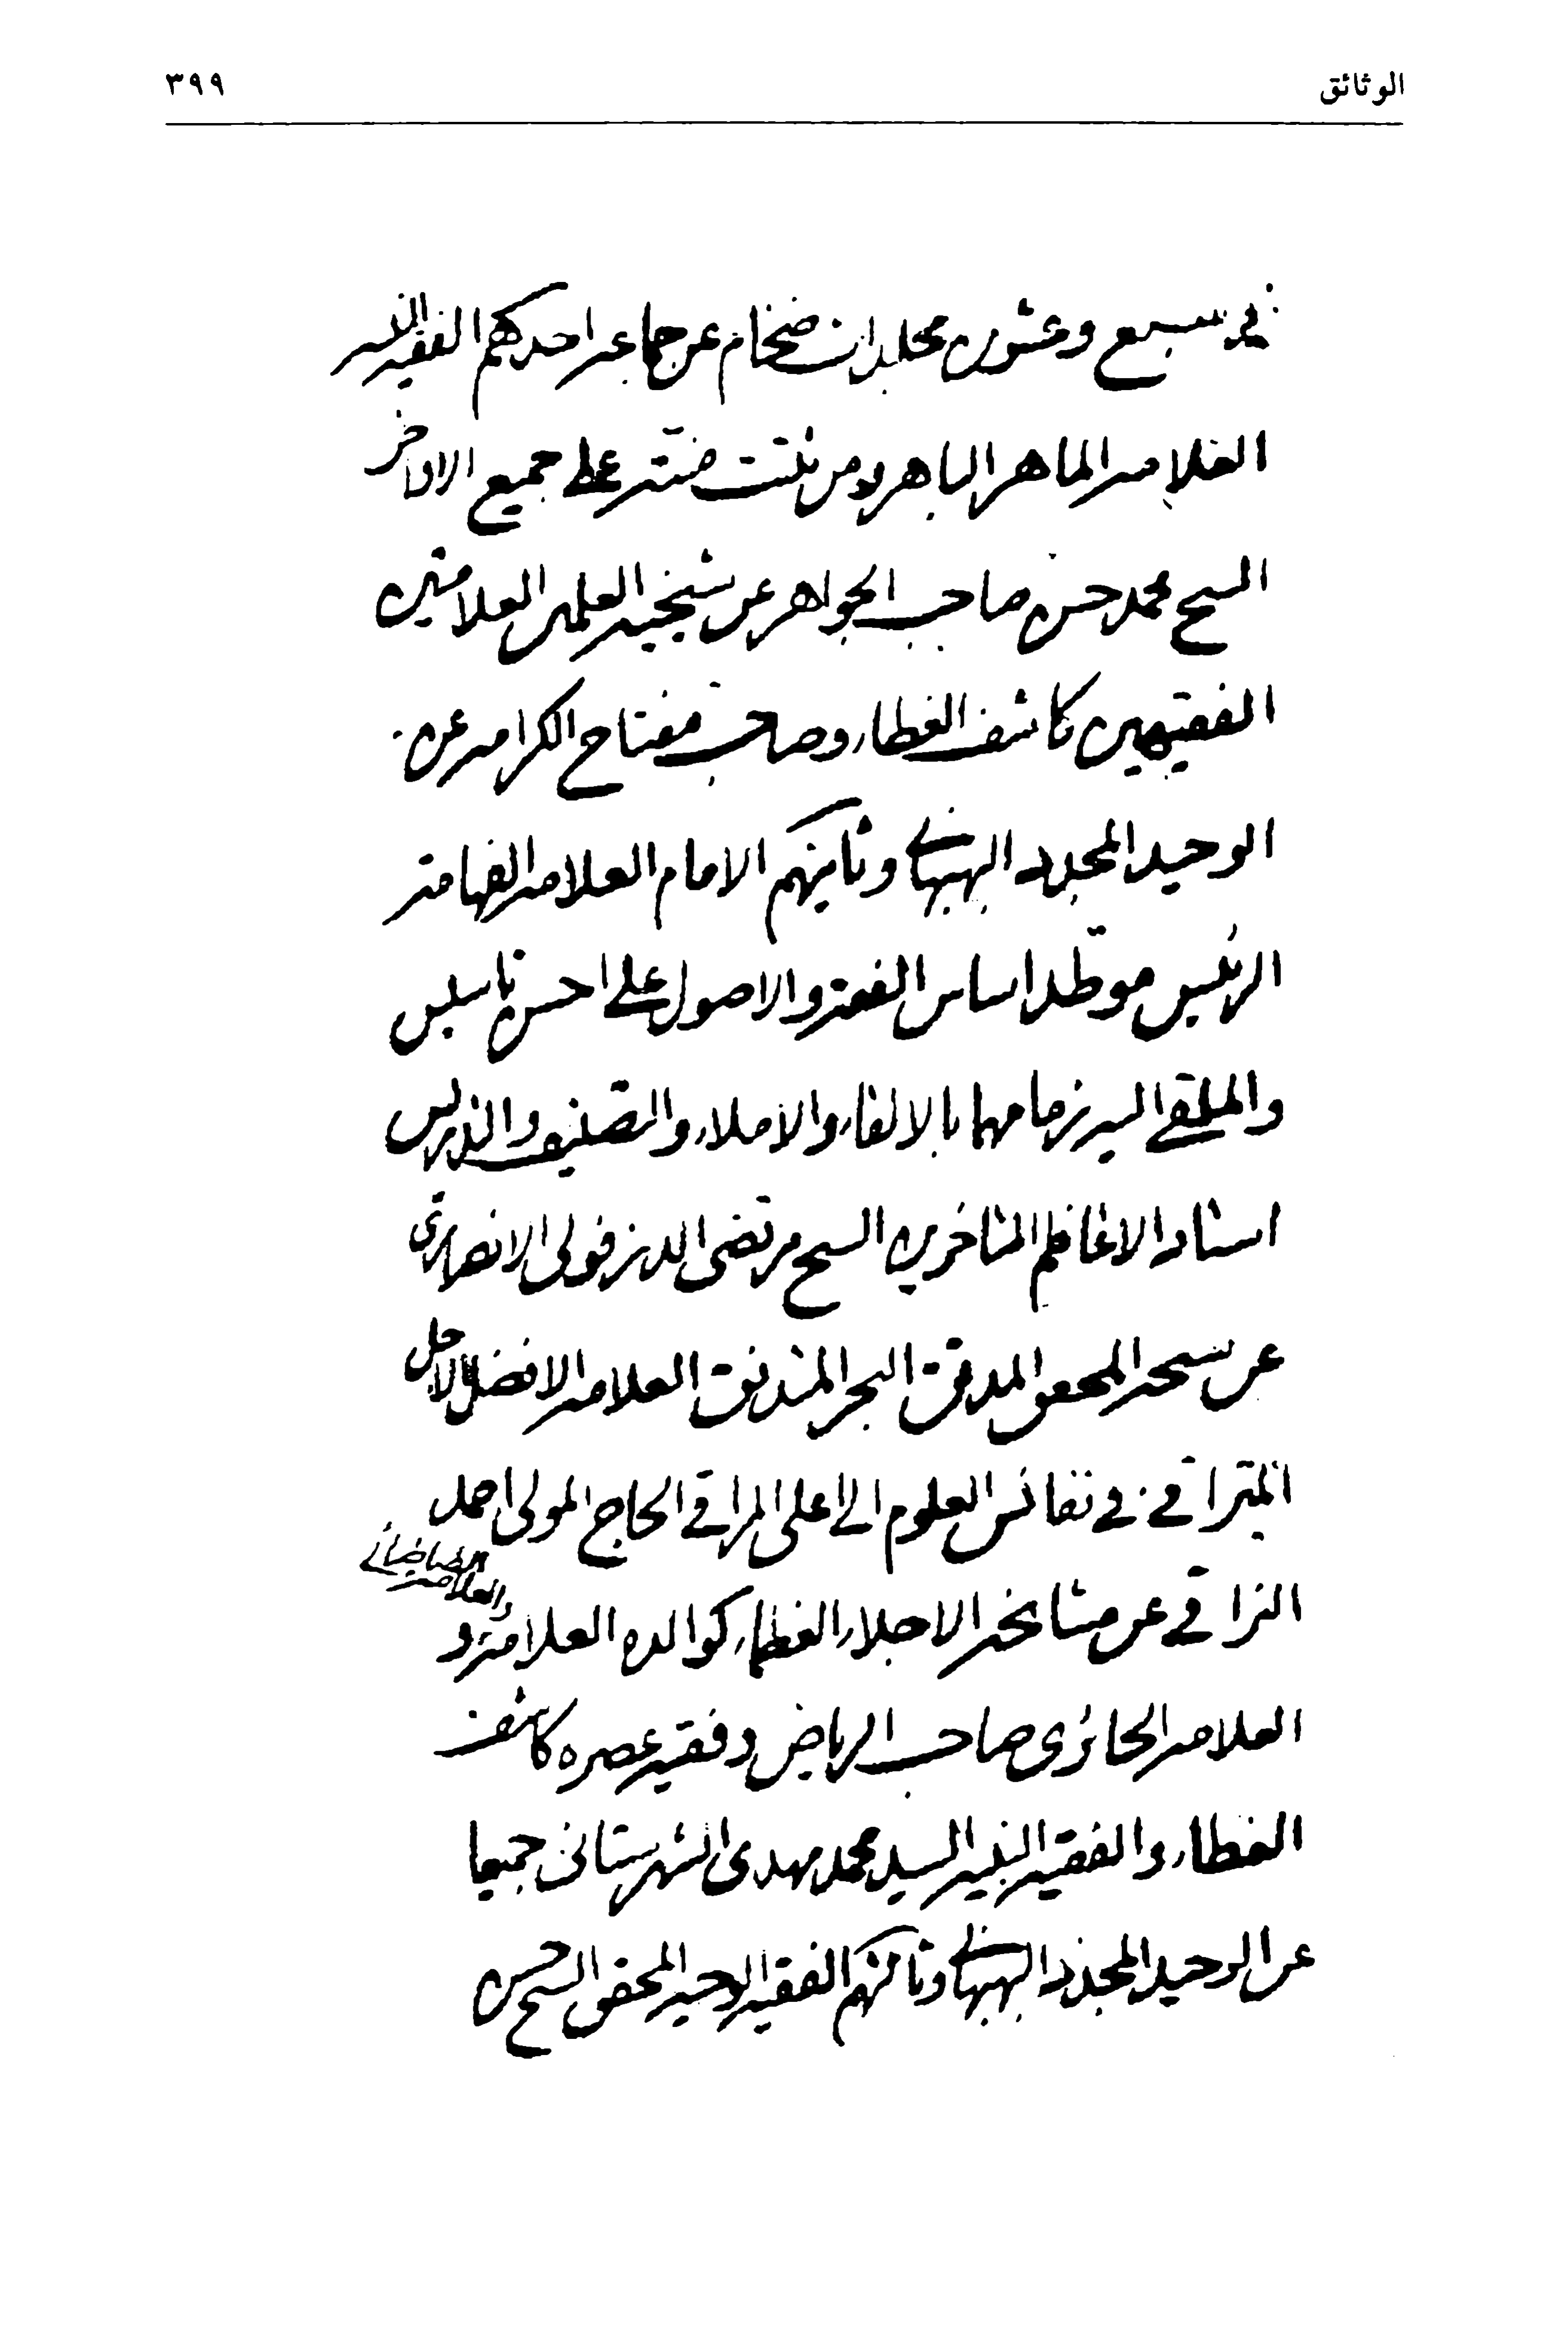 الوثائق
٣٩٩
في سبع وعشرين مجلدات ضخام عن جماعة احدهم الفقيه
العلامة الماهر الباهر ومن ثبتت منته على جميع الاواخر
الشيخ محمد حسن صاحب الجواهر عن شيخيه العلمين العلامتين
الفقيهين كاشف الغطاء وصاحب مفتاح الكرامة عن
الوحيد المجدد البهبهاني وثانيهم الامام العلامة الفهامة
الرئيس موطد اساس الفقه والاصول على احسن تاسيس
والملقى اليه زمامهما بالالقاء والاملاء والتصنيف والتدريس
استاد الاعاظم المتاخرين الشيخ مرتضى الدزفولي الانصاري
عن شيخه المحقق المدقق البحر المتدفق العلامة الافضل الاجل
المتراقي في نفائس العلوم الى اعلى المراقي الحاج المولى احمد
النراقي عن مشايخه الاجلاء العظماء كوالده العلامة و
العلامة الطباطبائي
العلامة الحائرى صاحب الرياض وفقيه عصره كاشف
الغطاء والفقيه النبيه السيد محمد مهدى الشهرستاني جميعا
عن الوحيد المجدد البهبهاني وثالثهم الفقيه الوجيه المحقق الشيخ حسن